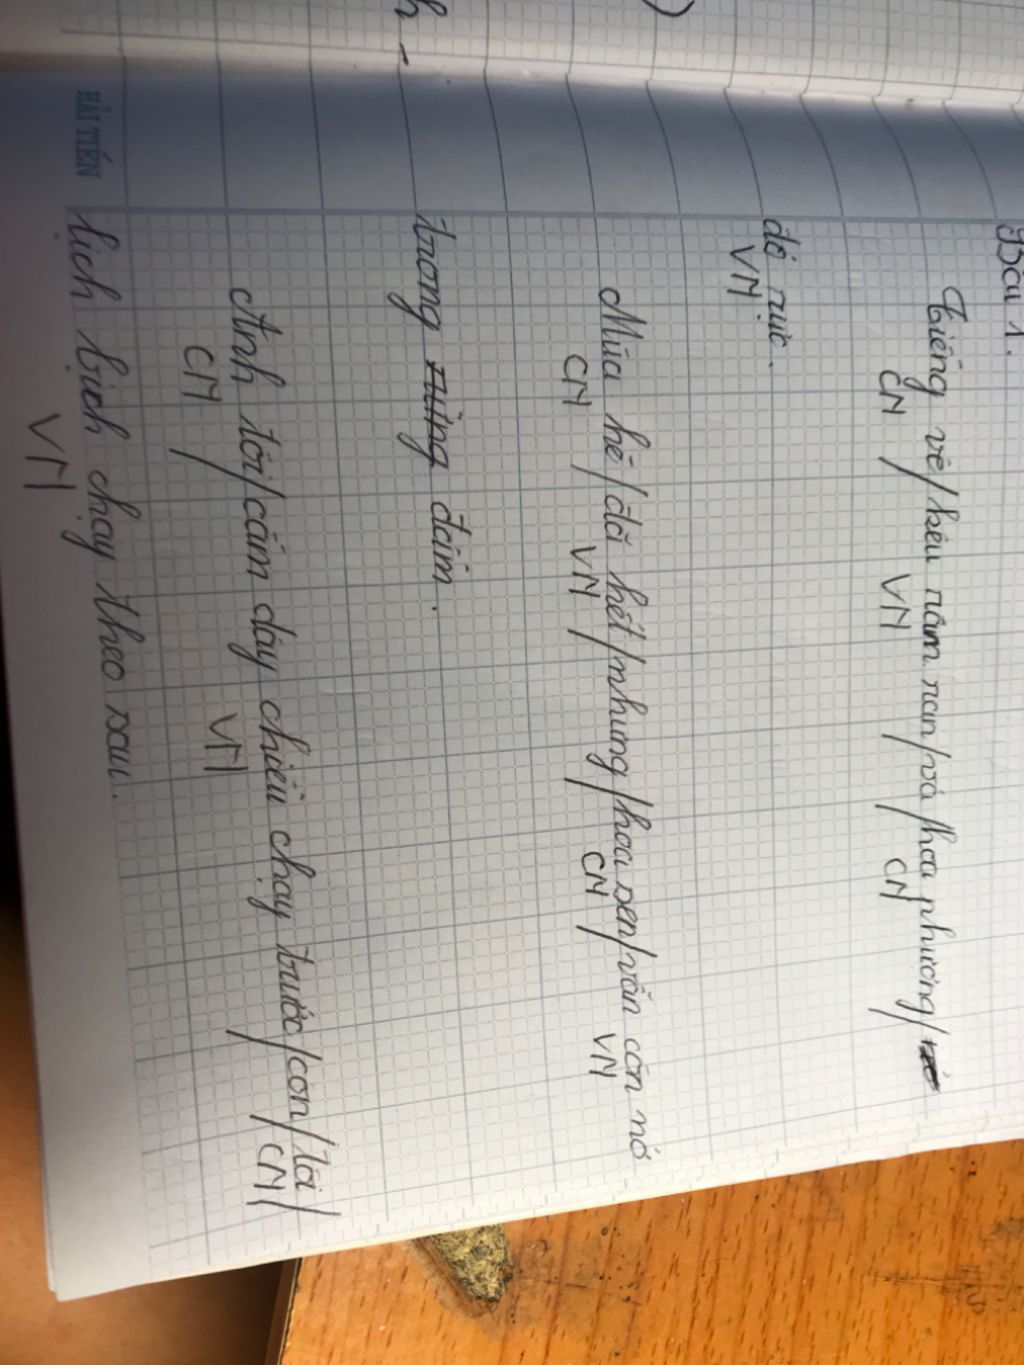 Bài 1.
Tiếng vê/kêu râm ran/và/hoa phương/
CN / VN / / CN /
đỏ rực.
VN
Mùa hè/đã hết/nhưng/hoa sen/vẫn còn nở
CN / VN / / CN / VN
trong đầm.
Anh tôi/cầm dây chiều chạy trước/còn/tôi/
CN / VN / / CN /
lịch bịch chạy theo sau.
VN
HẢI TIẾN